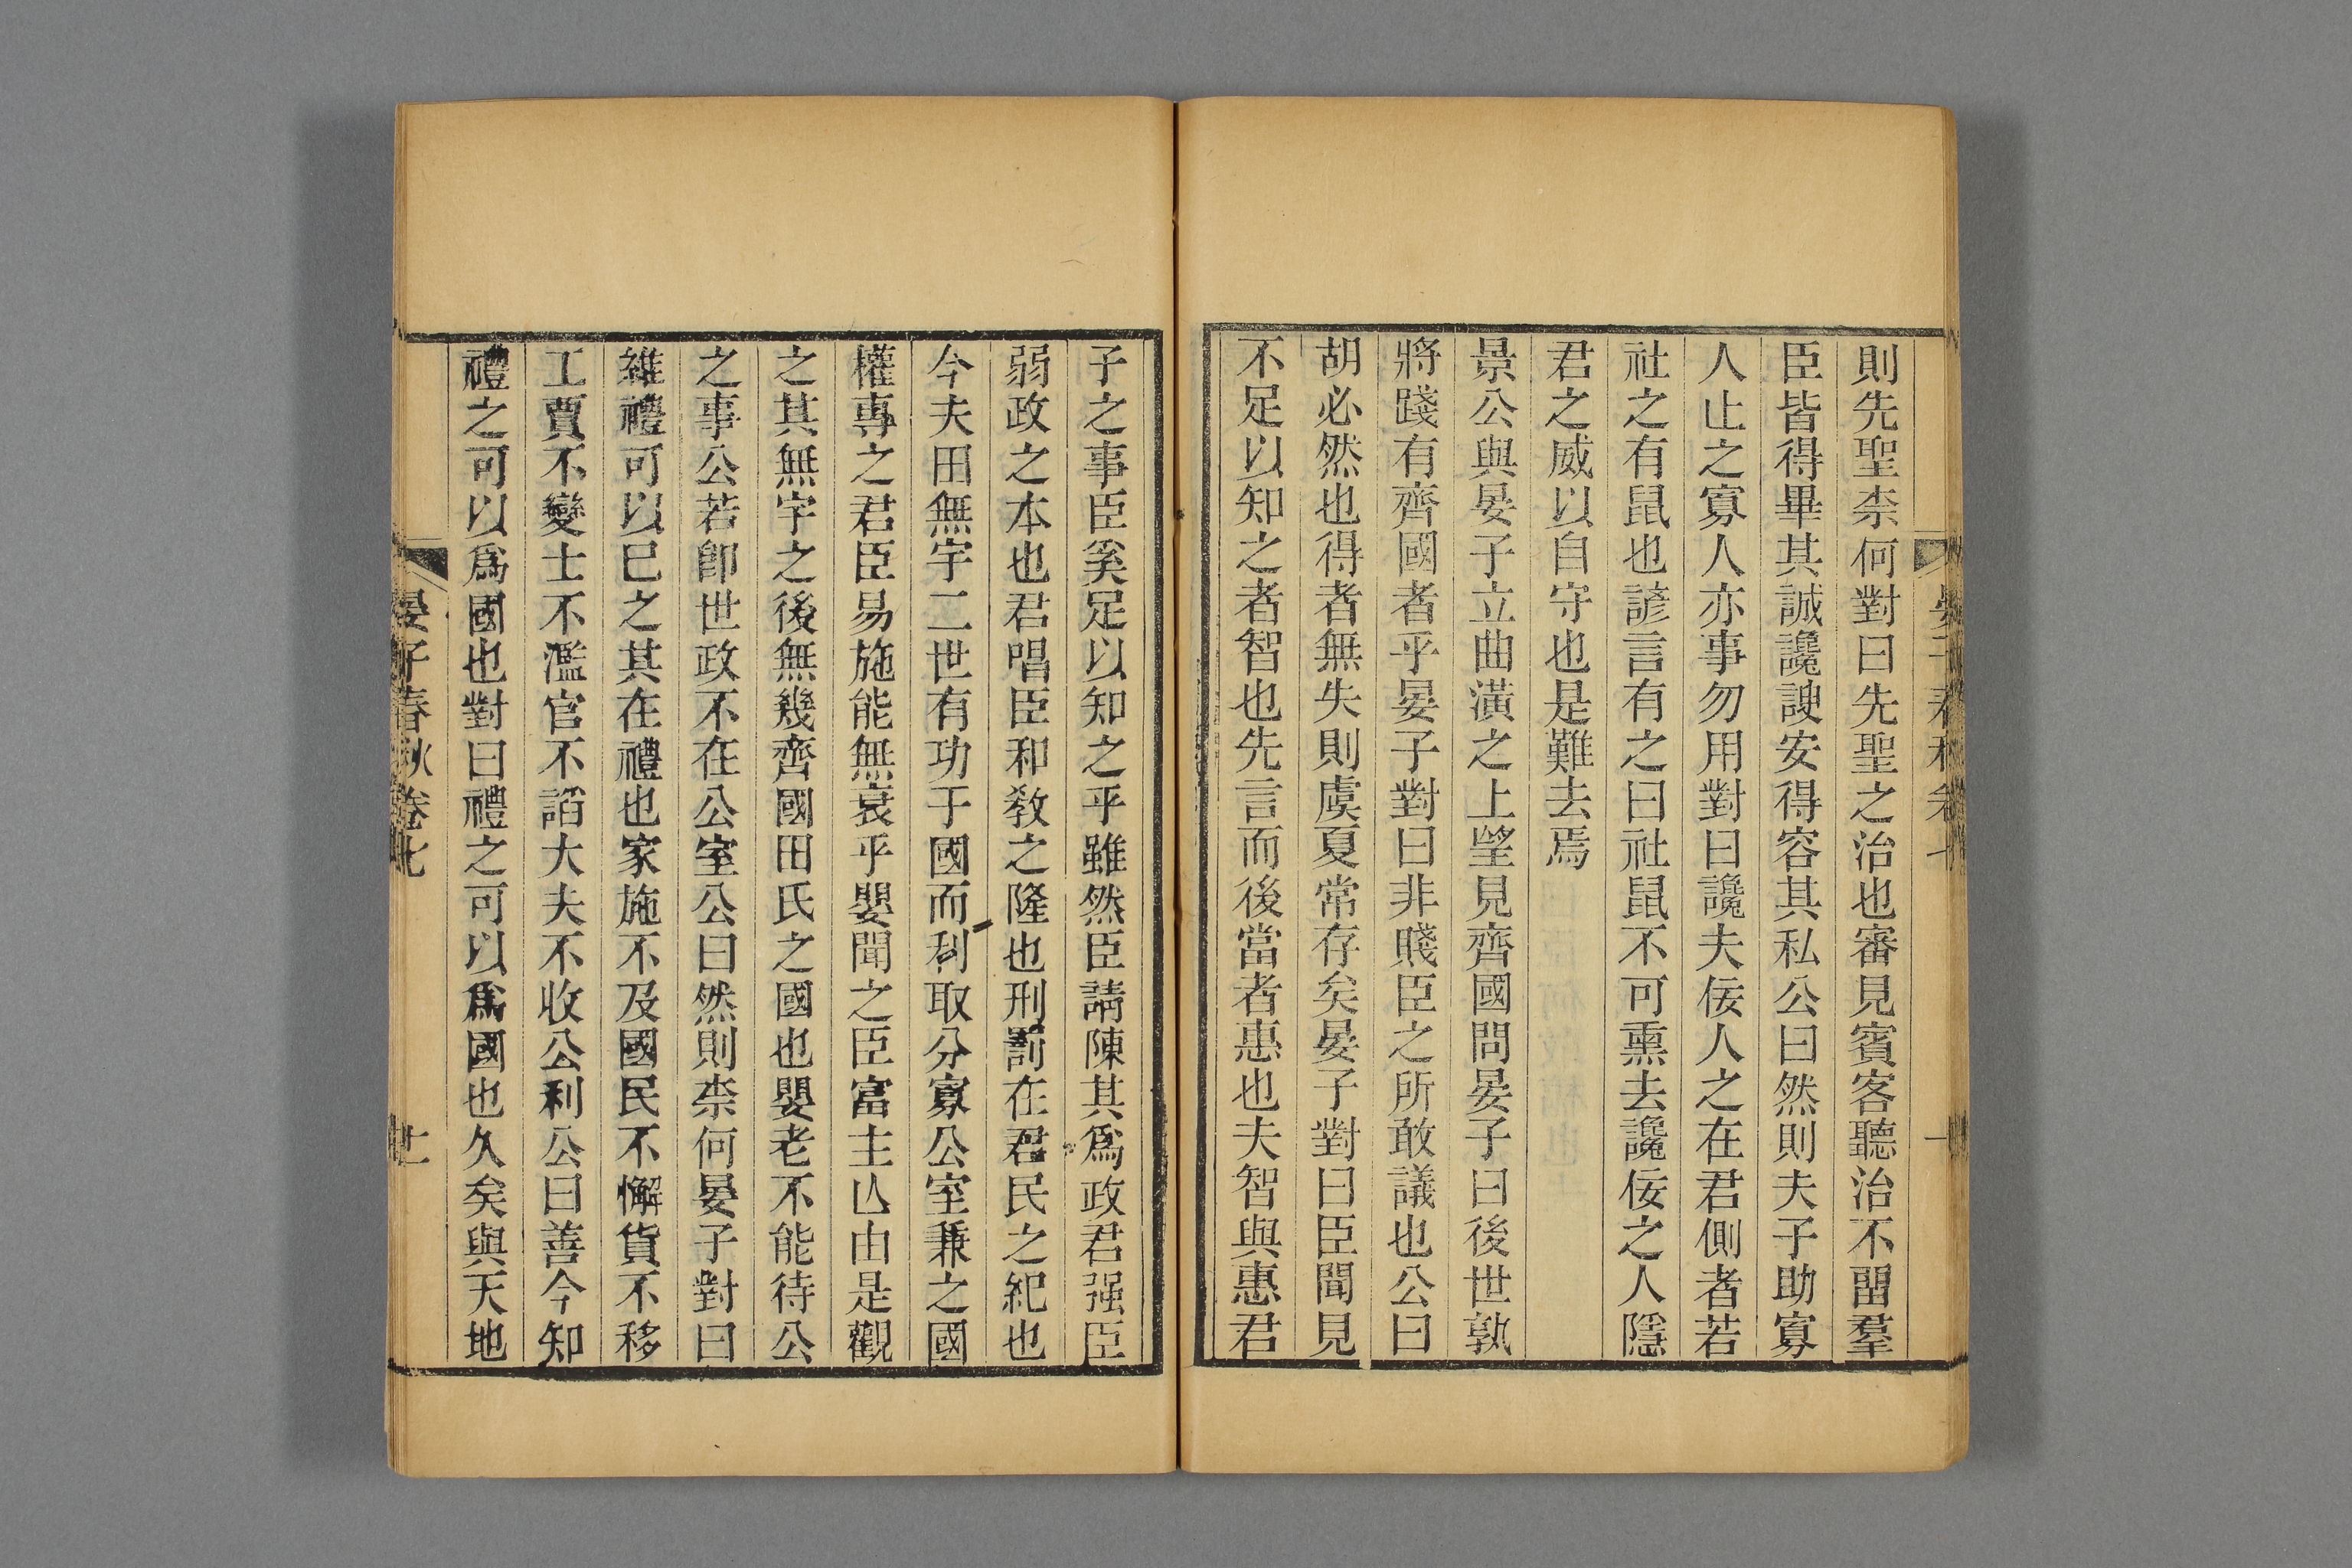 則先聖柰何對曰先聖之治也審見賓客聽治不畱羣
臣皆得畢其誠讒諛安得容其私公曰然則夫子助寡
人止之寡人亦事勿用對曰讒夫佞人之在君側者若
社之有鼠也諺言有之曰社鼠不可熏去讒佞之人隱
君之威以自守也是難去焉
景公與晏子立曲潢之上望見齊國問晏子曰後世孰
將踐有齊國者乎晏子對曰非賤臣之所敢議也公曰
胡必然也得者無失則虞夏常存矣晏子對曰臣聞見
不足以知之者智也先言而後當者惠也夫智與惠君
子之事臣奚足以知之乎雖然臣請陳其爲政君强臣
弱政之本也君唱臣和敎之隆也刑罰在君民之紀也
今夫田無宇二世有功于國而利取分寡公室兼之國
權專之君臣易施能無衰乎嬰聞之臣富主亾由是觀
之其無宇之後無幾齊國田氏之國也嬰老不能待公
之事公若卽世政不在公室公曰然則柰何晏子對曰
維禮可以已之其在禮也家施不及國民不懈貨不移
工賈不變士不濫官不謟大夫不收公利公曰善今知
禮之可以爲國也對曰禮之可以爲國也久矣與天地
晏子春秋卷七